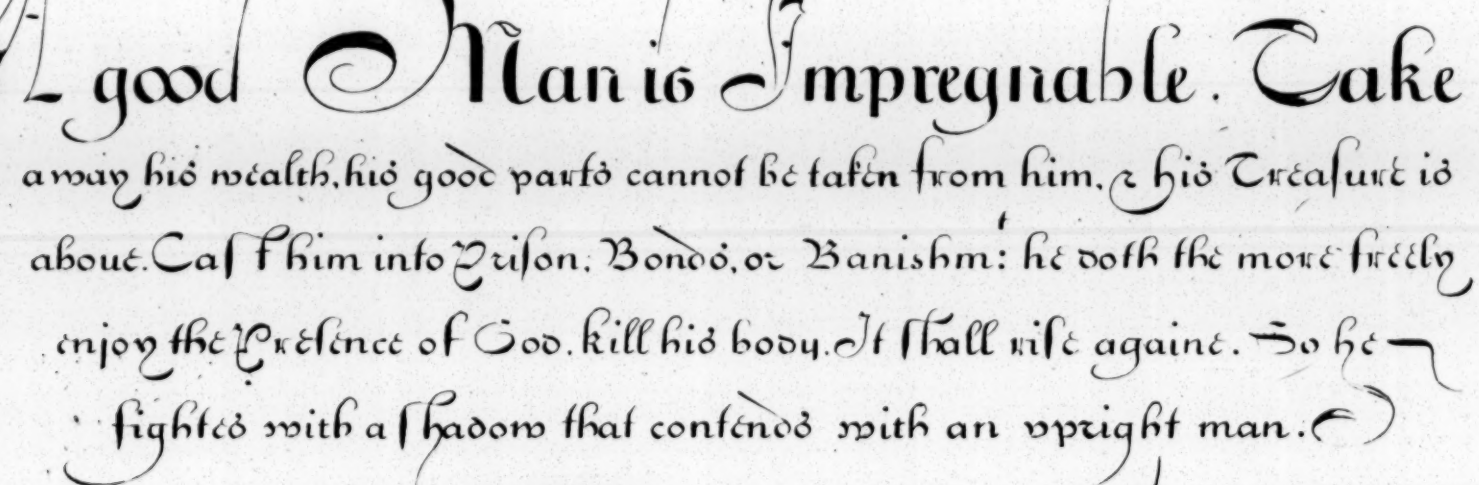 A good Man is Impregnable. Take
away his wealth, his good parts cannot be taken from him, & his Treasure is
above. Cast him into Prison, Bonds, or Banishmt: he doth the more freely
enjoy the Presence of God. kill his body. It shall rise againe. So he
fightes with a shadow that contends with an vpright man.